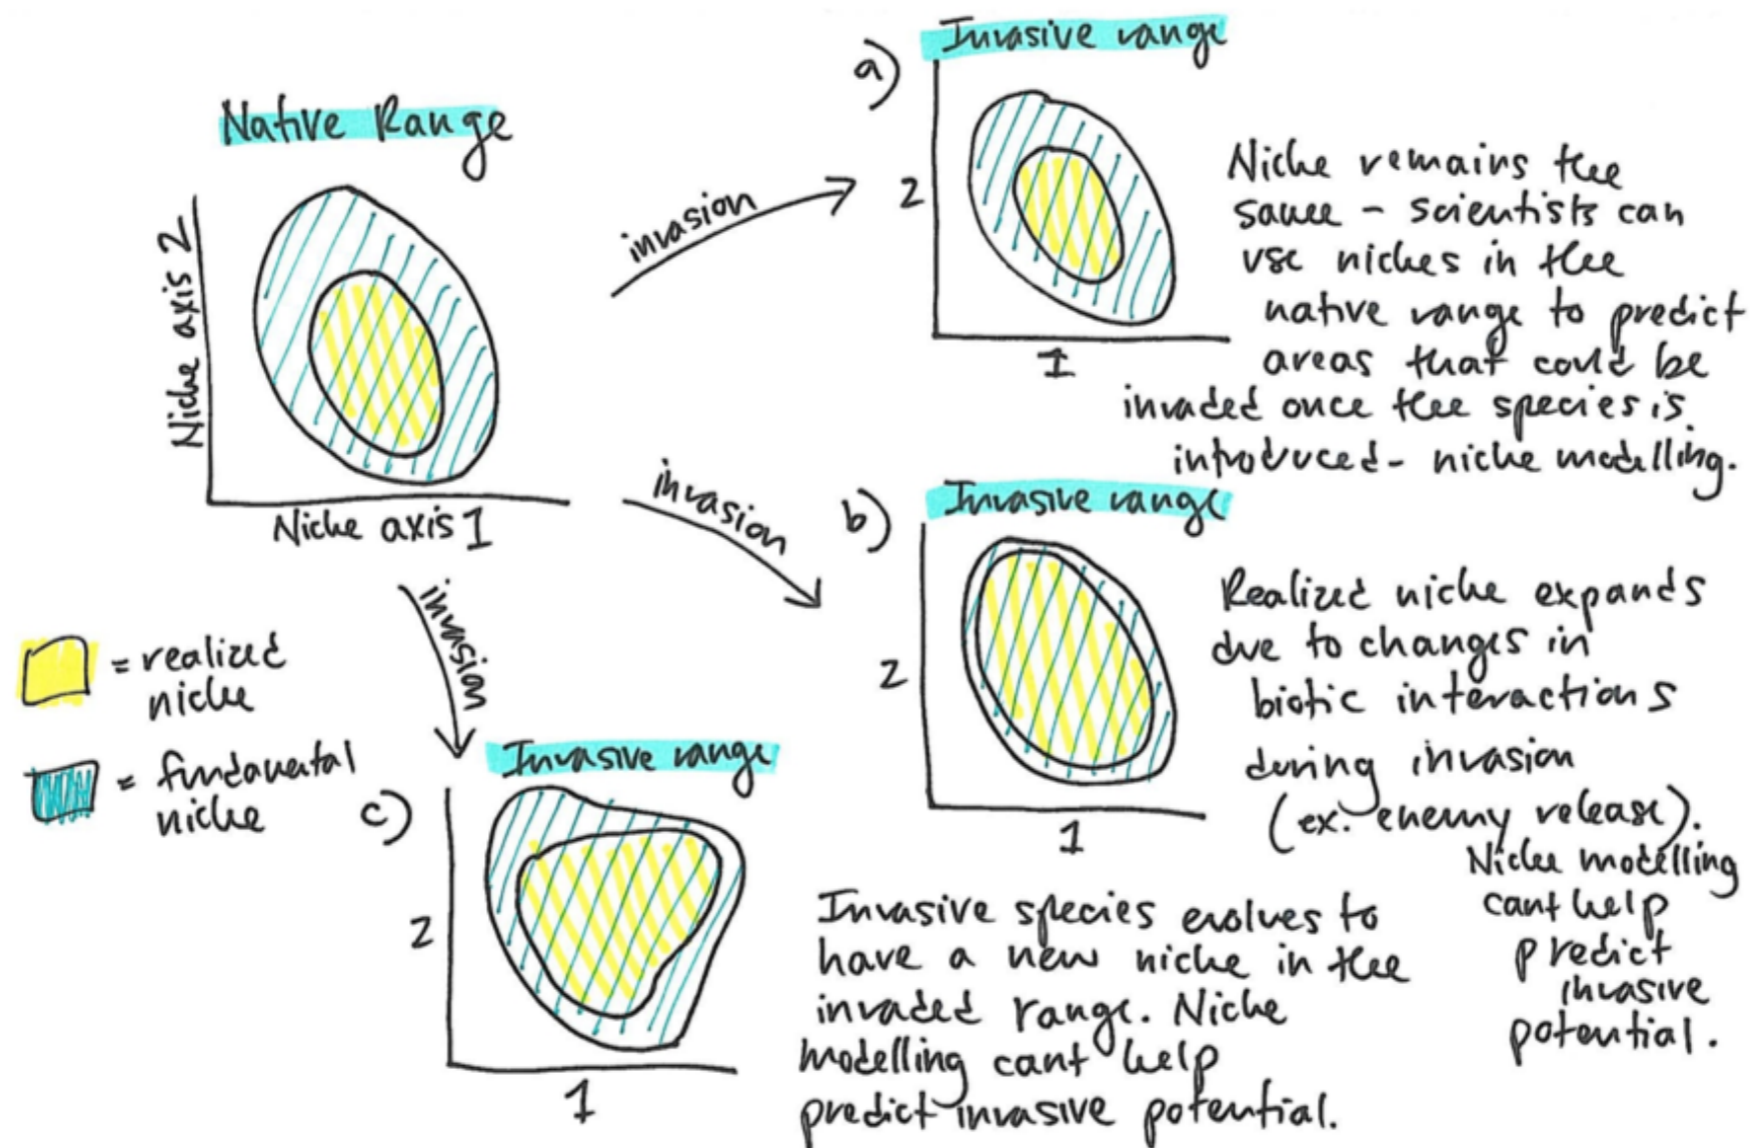 Native Range
Niche axis 2
Niche axis 1
invasion
invasion
invasion
= realized
niche
= fundamental
niche
a)
Invasive range
2
1
Niche remains the
same - scientists can
use niches in the
native range to predict
areas that could be
invaded once the species is
introduced - niche modelling.
b)
Invasive range
2
1
Realized niche expands
due to changes in
biotic interactions
during invasion
(ex. enemy release).
Niche modelling
cant help
predict
invasive
potential.
c)
Invasive range
2
1
Invasive species evolves to
have a new niche in the
invaded range. Niche
modelling cant help
predict invasive potential.